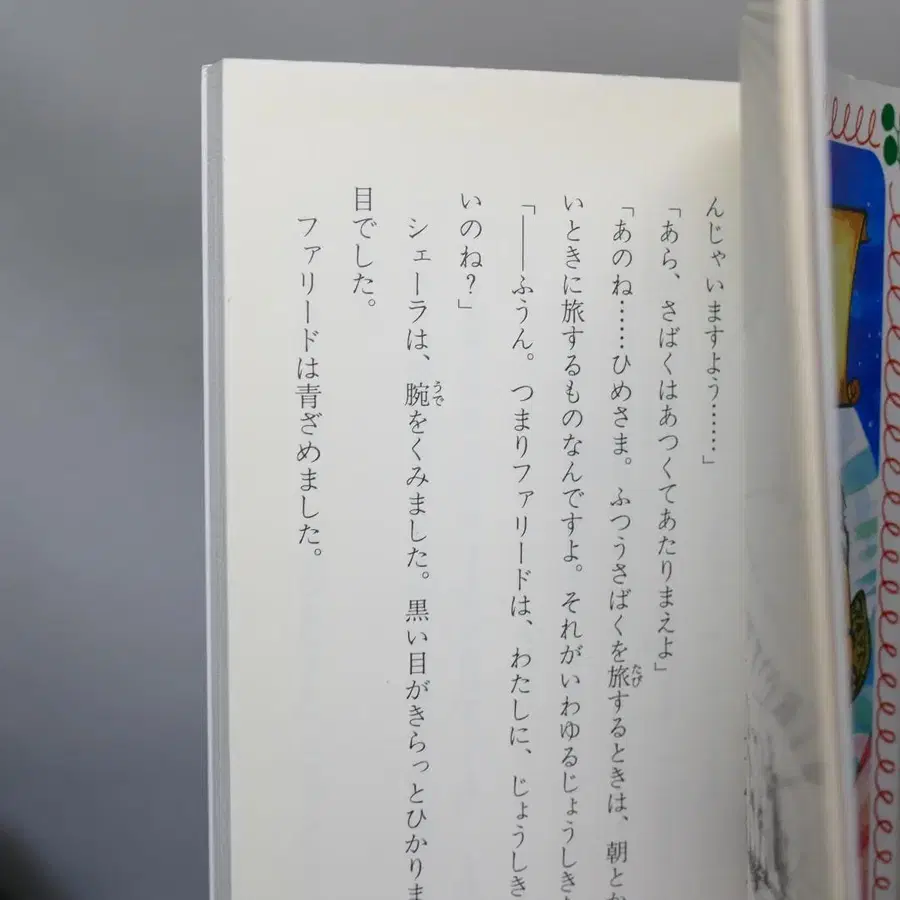 んじゃいますよう……」
「あら、さばくはあつくてあたりまえよ」
「あのね……ひめさま。ふつうさばくを旅するときは、朝とか
いときに旅するものなんですよ。それがいわゆるじょうしき
「――ふうん。つまりファリードは、わたしに、じょうしき
いのね?」
シェーラは、腕をくみました。黒い目がきらっとひかりま
目でした。
ファリードは青ざめました。